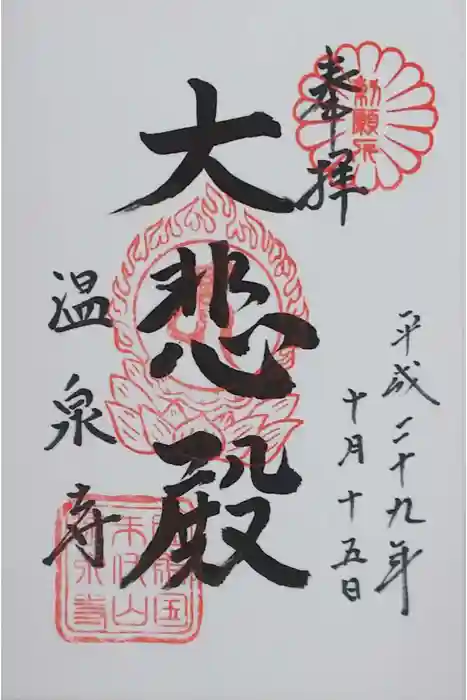 奉拝
勅願所
平成二十九年
十月十五日
大悲殿
温泉寺